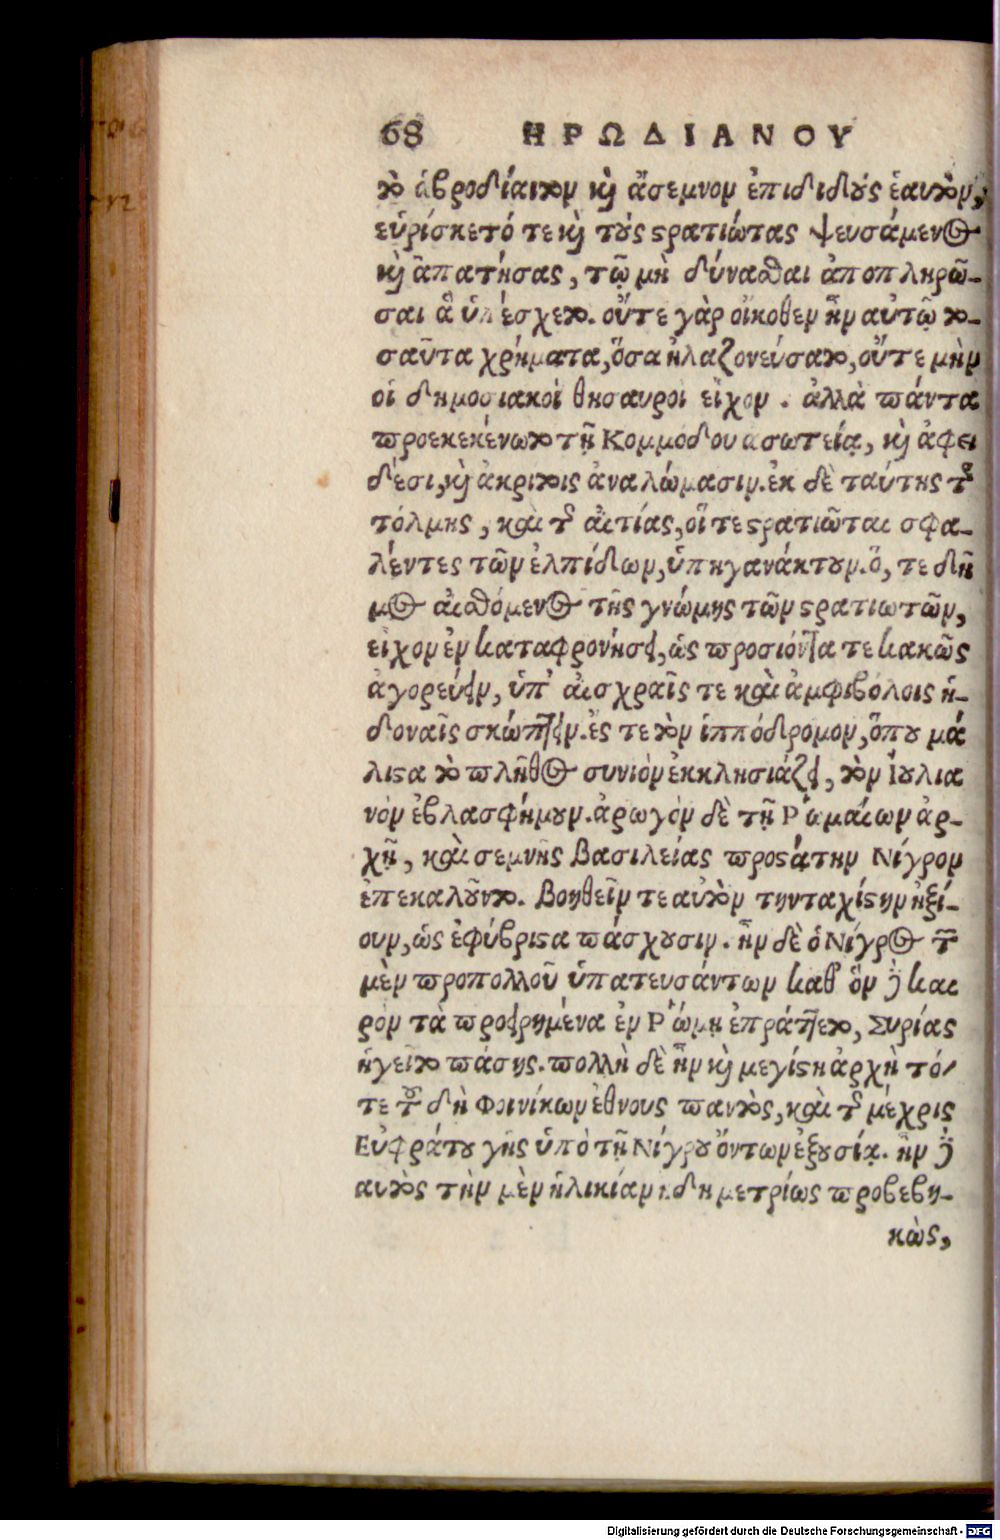 68 ΗΡΩΔΙΑΝΟΥ
τὸ ἁβροδίαιτον καὶ ἄσεμνον ἐπιδιδοὺς ἑαυτὸν,
εὑρίσκετό τε καὶ τοὺς στρατιώτας ψευσάμενος
καὶ ἀπατήσας, τῷ μὴ δύνασθαι ἀποπληρῶ-
σαι ἃ ὑπέσχετο. οὔτε γὰρ οἴκοθεν ἦν αὐτῷ το-
σαῦτα χρήματα, ὅσα ἠλαζονεύσατο, οὔτε μὴν
οἱ δημοσιακοὶ θησαυροὶ εἶχον . ἀλλὰ πάντα
προεκεκένωτο τῇ Κομμόδου ασωτείᾳ, καὶ ἀφει
δέσι, καὶ ἀκρίτοις ἀναλώμασιν. ἐκ δὲ ταύτης τῆς
τόλμης, καὶ τῆς αἰτίας, οἵ τε στρατιῶται σφα-
λέντες τῶν ἐλπίδων, ὑπηγανάκτουν. ὅ, τε δῆ
μος αἰσθόμενος τῆς γνώμης τῶν στρατιωτῶν,
εἶχον ἐν καταφρονήσει, ὡς προσιόντα τε κακῶς
ἀγορεύειν, ὑπ' αἰσχραῖς τε καὶ ἀμφιβόλοις ἡ-
δοναῖς σκώπτειν. ἔς τε τὸν ἱππόδρομον, ὅπου μά
λιστα τὸ πλῆθος συνιὸν ἐκκλησιάζει, τὸν Ἰουλια
νὸν ἐβλασφήμουν. ἀρωγὸν δὲ τῇ Ῥωμαίων ἀρ-
χῇ, καὶ σεμνῆς βασιλείας προστάτην Νίγρον
ἐπεκαλοῦντο. βοηθεῖν τε αὐτὸν τὴν ταχίστην ἠξί-
ουν, ὡς ἐφύβριστα πάσχουσιν. ἦν δὲ ὁ Νίγρος τῶν
μὲν προπολλοῦ ὑπατευσάντων καθ' ὃν δὲ και
ρὸν τὰ προειρημένα ἐν Ῥώμῃ ἐπράττετο, Συρίας
ἡγεῖτο πάσης. πολλὴ δὲ ἦν καὶ μεγίστη ἀρχὴ τό-
τε τοῦ δὴ Φοινίκων ἔθνους παντὸς, καὶ τῆς μέχρις
Εὐφράτου γῆς ὑπὸ τῇ Νίγρου ὄντων ἐξουσίᾳ. ἦν δὲ
αυτὸς τὴν μὲν ἡλικίαν ηδη μετρίως προβεβη-
κὼς,
Digitalisierung gefördert durch die Deutsche Forschungsgemeinschaft - DFG